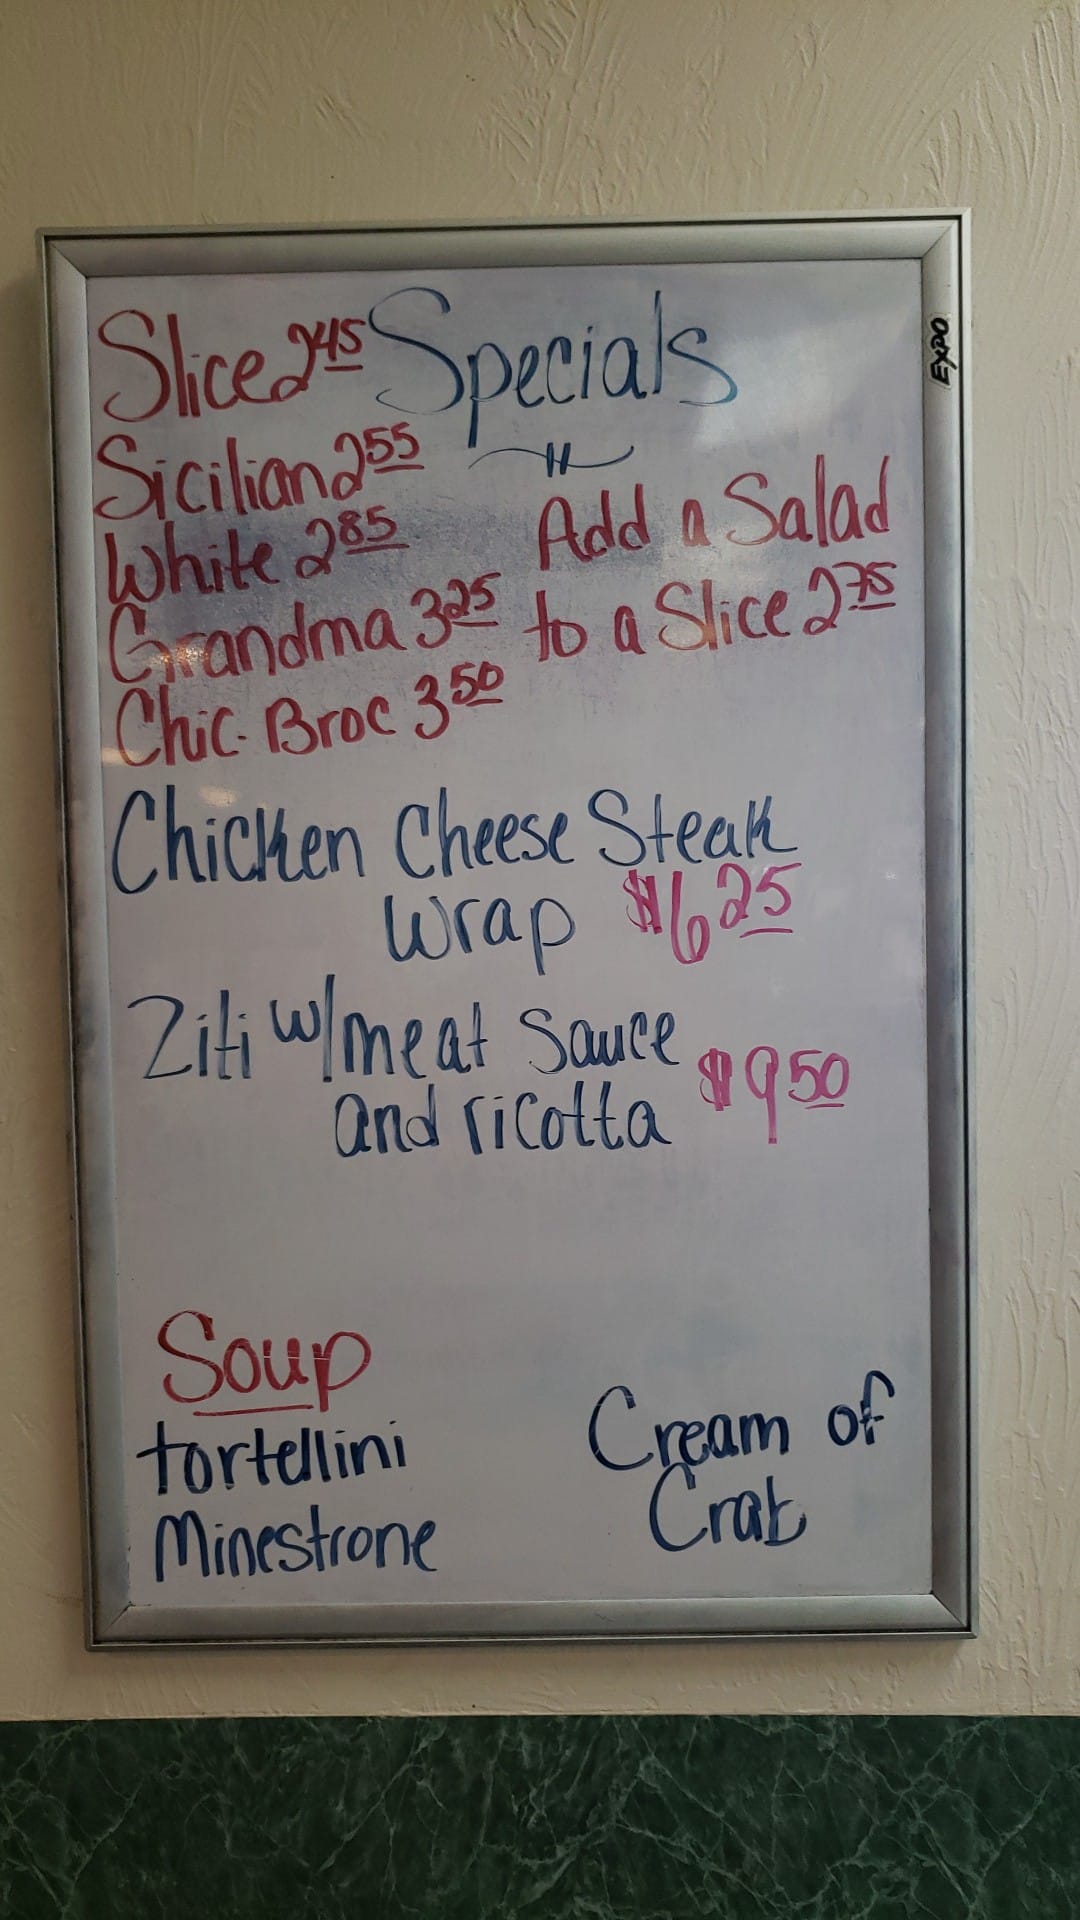 Slice 2.45 Specials
Sicilian 2.55
White 2.85
Grandma 3.25
Chic. Broc 3.50
Add a Salad
to a Slice 2.75
Chicken Cheese Steak
Wrap $6.25
Ziti w/meat Sauce
and ricotta $9.50
Soup
tortellini
Minestrone
Cream of
Crab
EXPO